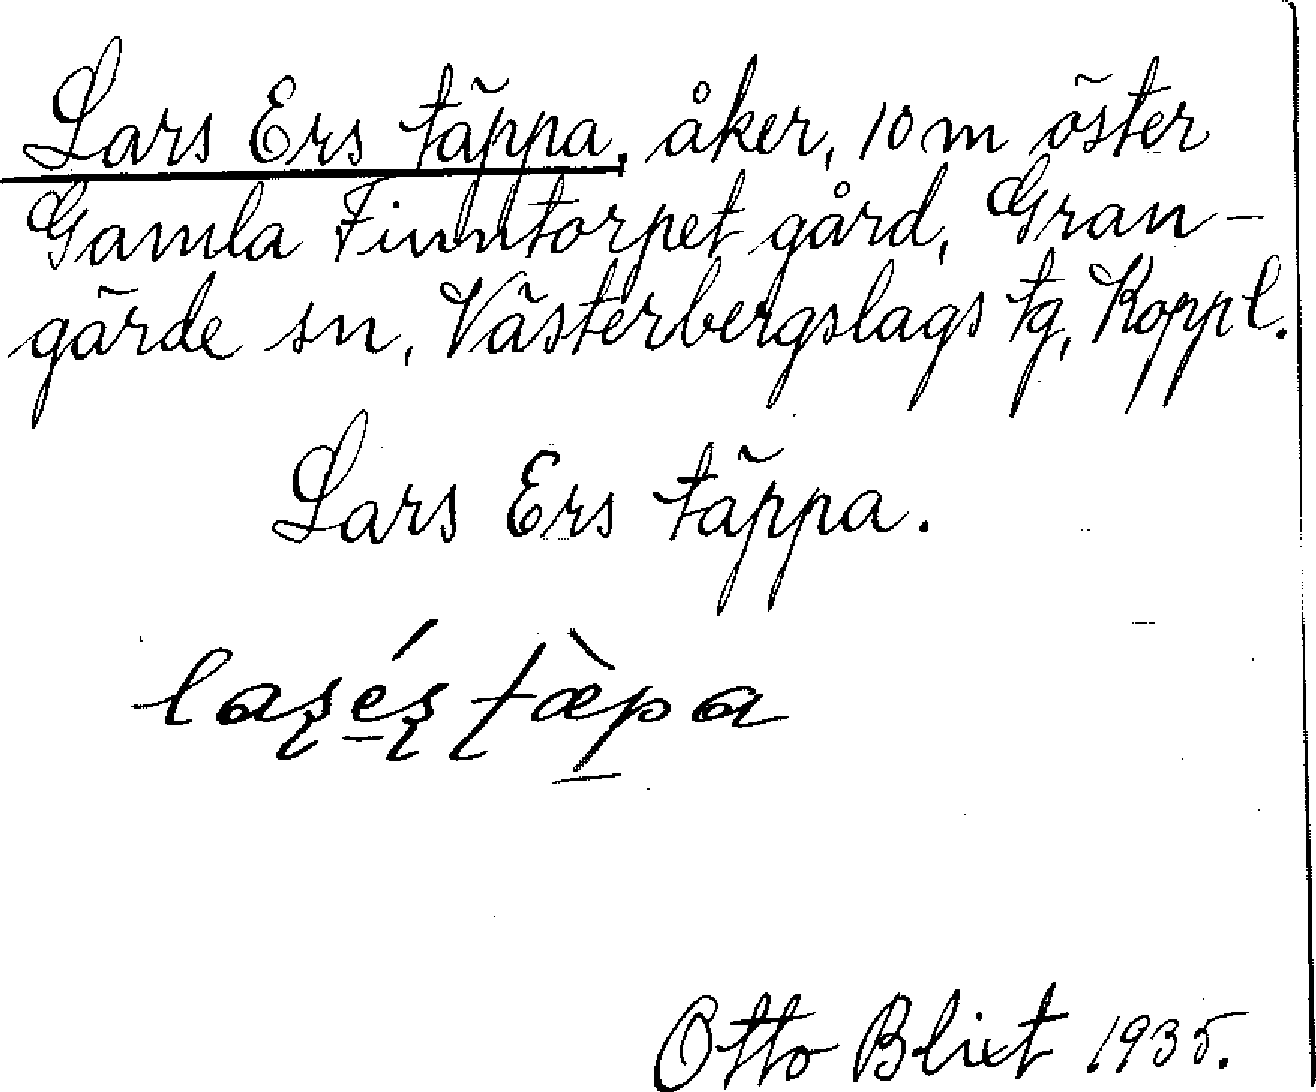 Lars Ers täppa, åker, 10 m öster
Gamla Finntorpet gård, Gran-
gärde sn, Västerbergslags tg, Koppl.
Lars Ers täppa.
laʂéʂ ʈæ̀pa
Otto Blixt 1935.